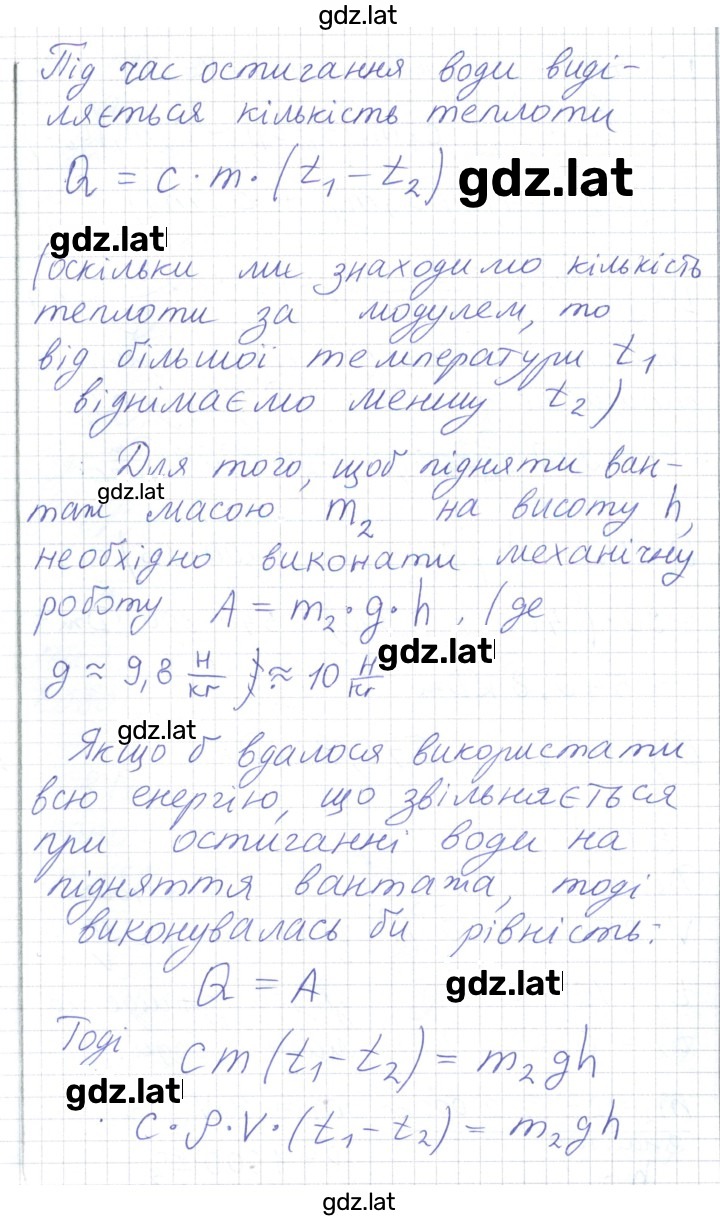 gdz.lat
Під час остигання води виді-
ляється кількість теплоти
Q = c · m · (t₁ – t₂) gdz.lat
gdz.lat
(оскільки ми знаходимо кількість
теплоти за модулем, то
від більшої температури t₁
віднімаємо меншу t₂)
Для того, щоб підняти ван-
gdz.lat
таж масою m₂ на висоту h,
необхідно виконати механічну
роботу A = m₂ · g · h , (де
gdz.lat
g ≈ 9,8 Н/кг ) ≈ 10 Н/кг
gdz.lat
Якщо б вдалося використати
всю енергію, що звільняється
при остиганні води на
підняття вантажа, тоді
виконувалась би рівність:
Q = A gdz.lat
Тоді cm(t₁ – t₂) = m₂gh
gdz.lat
c · ρ · V · (t₁ – t₂) = m₂gh
gdz.lat